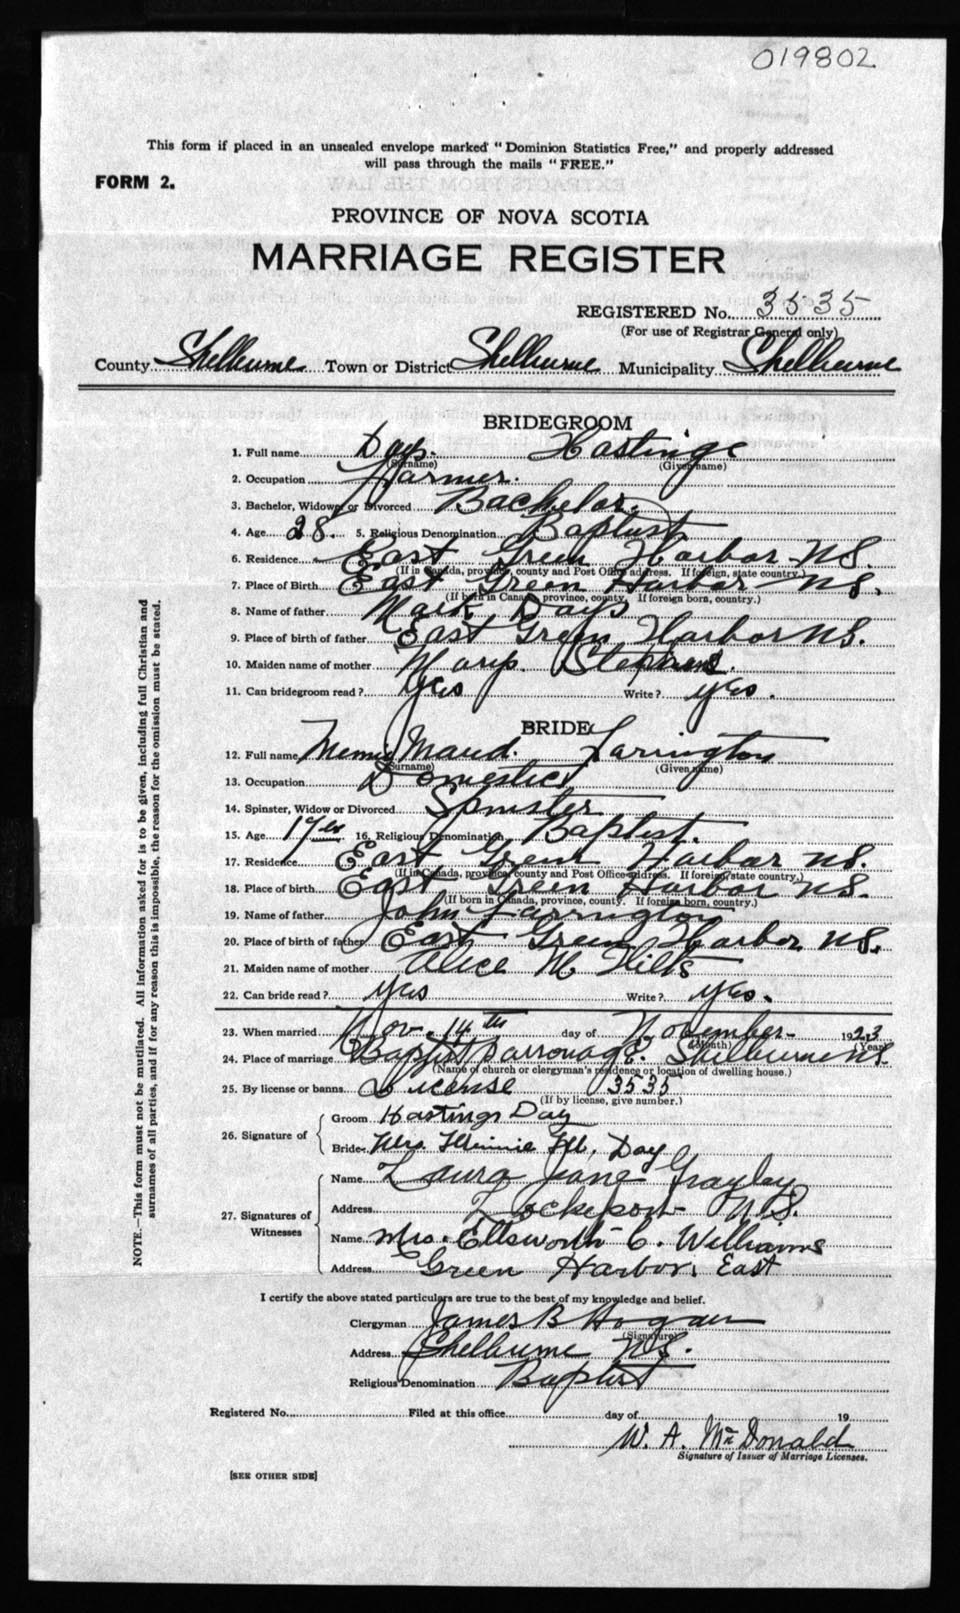 019802
This form if placed in an unsealed envelope marked "Dominion Statistics Free," and properly addressed
will pass through the mails "FREE."
FORM 2.
PROVINCE OF NOVA SCOTIA
MARRIAGE REGISTER
REGISTERED No. 3535
(For use of Registrar General only)
County Shelburne Town or District Shelburne Municipality Shelburne
BRIDEGROOM
1. Full name Day. Hastings
(Surname) (Given name)
2. Occupation Farmer.
3. Bachelor, Widower or Divorced Bachelor.
4. Age 28. 5. Religious Denomination Baptist
6. Residence East Green Harbor N.S.
(If in Canada, province, county and Post Office address. If foreign, state country.)
7. Place of Birth East Green Harbor N.S.
(If born in Canada, province, county. If foreign born, country.)
8. Name of father Mark Days
9. Place of birth of father East Green Harbor N.S.
10. Maiden name of mother Stephens.
11. Can bridegroom read? yes Write? yes.
BRIDE
12. Full name Maud. Larrington
(Surname) (Given name)
13. Occupation Domestict
14. Spinster, Widow or Divorced Spinster
15. Age 16. Religious Denomination Baptist.
17. Residence East Green Harbor N.S.
(If in Canada, province, county and Post Office address. If foreign, state country.)
18. Place of birth East Green Harbor N.S.
(If born in Canada, province, county. If foreign born, country.)
19. Name of father John Larrington
20. Place of birth of father East Green Harbor N.S.
21. Maiden name of mother Alice M Hilts
22. Can bride read? yes Write? yes.
23. When married Nov. 14th day of November 1923
(Month) (Year)
24. Place of marriage Baptist Parsonage. Shelburne N.S.
(Name of church or clergyman's residence or location of dwelling house.)
25. By license or banns License 3535
(If by license, give number.)
26. Signature of
Groom Hastings Day
Bride Mrs. Minnie M. Day
27. Signatures of Witnesses
Name Laura Jane Grayley
Address Lockeport N.S.
Name Mrs. Ellsworth C. Williams
Address Green Harbor, East
I certify the above stated particulars are true to the best of my knowledge and belief.
Clergyman James B Hogan
(Signature)
Address Shelburne N.S.
Religious Denomination Baptist
Registered No. Filed at this office day of 19
W. A. McDonald
Signature of Issuer of Marriage Licenses.
[SEE OTHER SIDE]
NOTE.—This form must not be mutilated. All information asked for is to be given, including full Christian and
surnames of all parties, and if for any reason this is impossible, the reason for the omission must be stated.